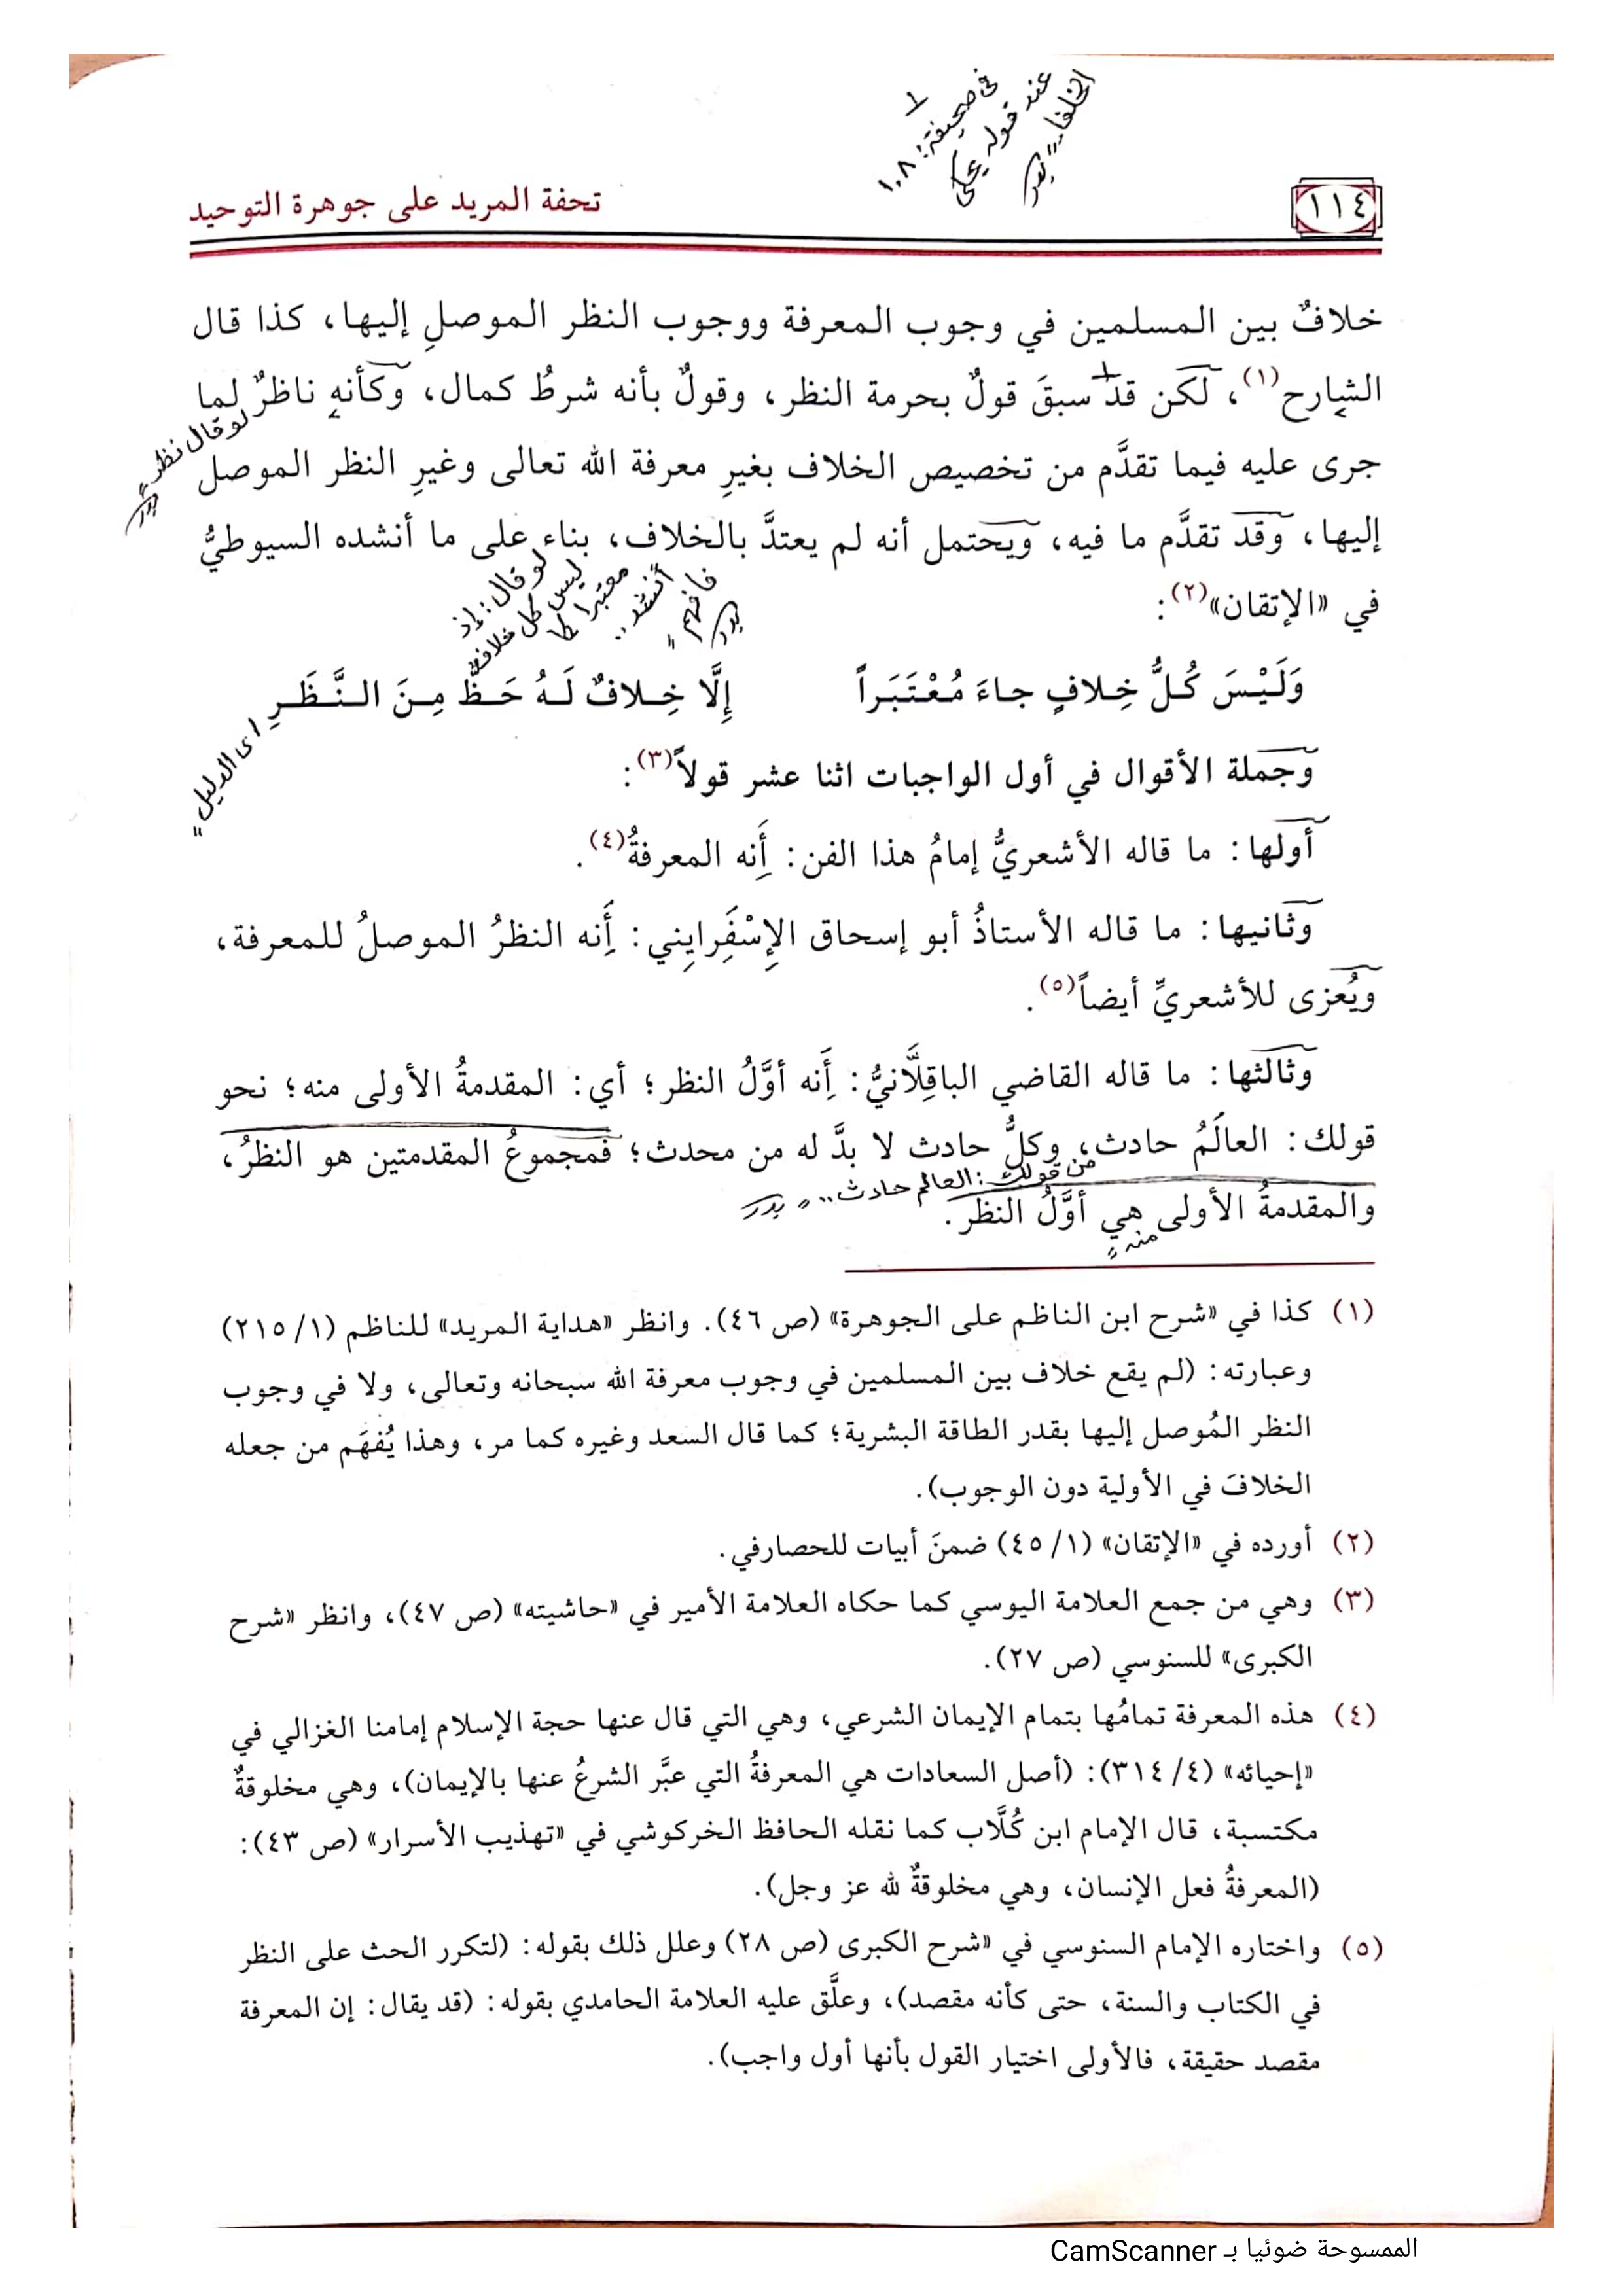 في صحيفة: ١٠٨
عند قوله يحكى
الخلفاء
١١٤
تحفة المريد على جوهرة التوحيد
خلافٌ بين المسلمين في وجوب المعرفة ووجوب النظر الموصلِ إليها، كذا قال
الشارح(١)، لكن قد سبقَ قولٌ بحرمة النظر، وقولٌ بأنه شرطُ كمال، وكأنه ناظرٌ لما
لو قال نظر
جرى عليه فيما تقدَّم من تخصيص الخلاف بغيرِ معرفة الله تعالى وغيرِ النظر الموصل
إليها، وقد تقدَّم ما فيه، ويحتمل أنه لم يعتدَّ بالخلاف، بناء على ما أنشده السيوطيُّ
في «الإتقان»(٢):
لو قال: إذ
ليس كل خلاف
معتبرا كما
أنشد..
فافهم
وَلَيْسَ كُلُّ خِلافٍ جاءَ مُعْتَبَراً إِلَّا خِلافٌ لَهُ حَظٌّ مِنَ النَّظَرِ
اى الدليل
وجملة الأقوال في أول الواجبات اثنا عشر قولاً(٣):
أولها: ما قاله الأشعريُّ إمامُ هذا الفن: أَنه المعرفةُ(٤).
وثانيها: ما قاله الأستاذُ أبو إسحاق الإِسْفَرايِني: أَنه النظرُ الموصلُ للمعرفة،
ويُعزى للأشعريِّ أيضاً(٥).
وثالثها: ما قاله القاضي الباقِلَّانيُّ: أَنه أوَّلُ النظر؛ أي: المقدمةُ الأولى منه؛ نحو
قولك: العالَمُ حادث، وكلُّ حادث لا بدَّ له من محدث؛ فمجموعُ المقدمتين هو النظرُ،
من قولك: العالم حادث.. بدر
والمقدمةُ الأولى هي أوَّلُ النظر.
منه
(١) كذا في «شرح ابن الناظم على الجوهرة» (ص ٤٦). وانظر «هداية المريد» للناظم (١/ ٢١٥)
وعبارته: (لم يقع خلاف بين المسلمين في وجوب معرفة الله سبحانه وتعالى، ولا في وجوب
النظر المُوصل إليها بقدر الطاقة البشرية؛ كما قال السعد وغيره كما مر، وهذا يُفهَم من جعله
الخلافَ في الأولية دون الوجوب).
(٢) أورده في «الإتقان» (١/ ٤٥) ضمنَ أبيات للحصارفي.
(٣) وهي من جمع العلامة اليوسي كما حكاه العلامة الأمير في «حاشيته» (ص ٤٧)، وانظر «شرح
الكبرى» للسنوسي (ص ٢٧).
(٤) هذه المعرفة تمامُها بتمام الإيمان الشرعي، وهي التي قال عنها حجة الإسلام إمامنا الغزالي في
«إحيائه» (٤/ ٣١٤): (أصل السعادات هي المعرفةُ التي عبَّر الشرعُ عنها بالإيمان)، وهي مخلوقةٌ
مكتسبة، قال الإمام ابن كُلَّاب كما نقله الحافظ الخركوشي في «تهذيب الأسرار» (ص ٤٣):
(المعرفةُ فعل الإنسان، وهي مخلوقةٌ لله عز وجل).
(٥) واختاره الإمام السنوسي في «شرح الكبرى (ص ٢٨) وعلل ذلك بقوله: (لتكرر الحث على النظر
في الكتاب والسنة، حتى كأنه مقصد)، وعلَّق عليه العلامة الحامدي بقوله: (قد يقال: إن المعرفة
مقصد حقيقة، فالأولى اختيار القول بأنها أول واجب).
الممسوحة ضوئيا بـ CamScanner